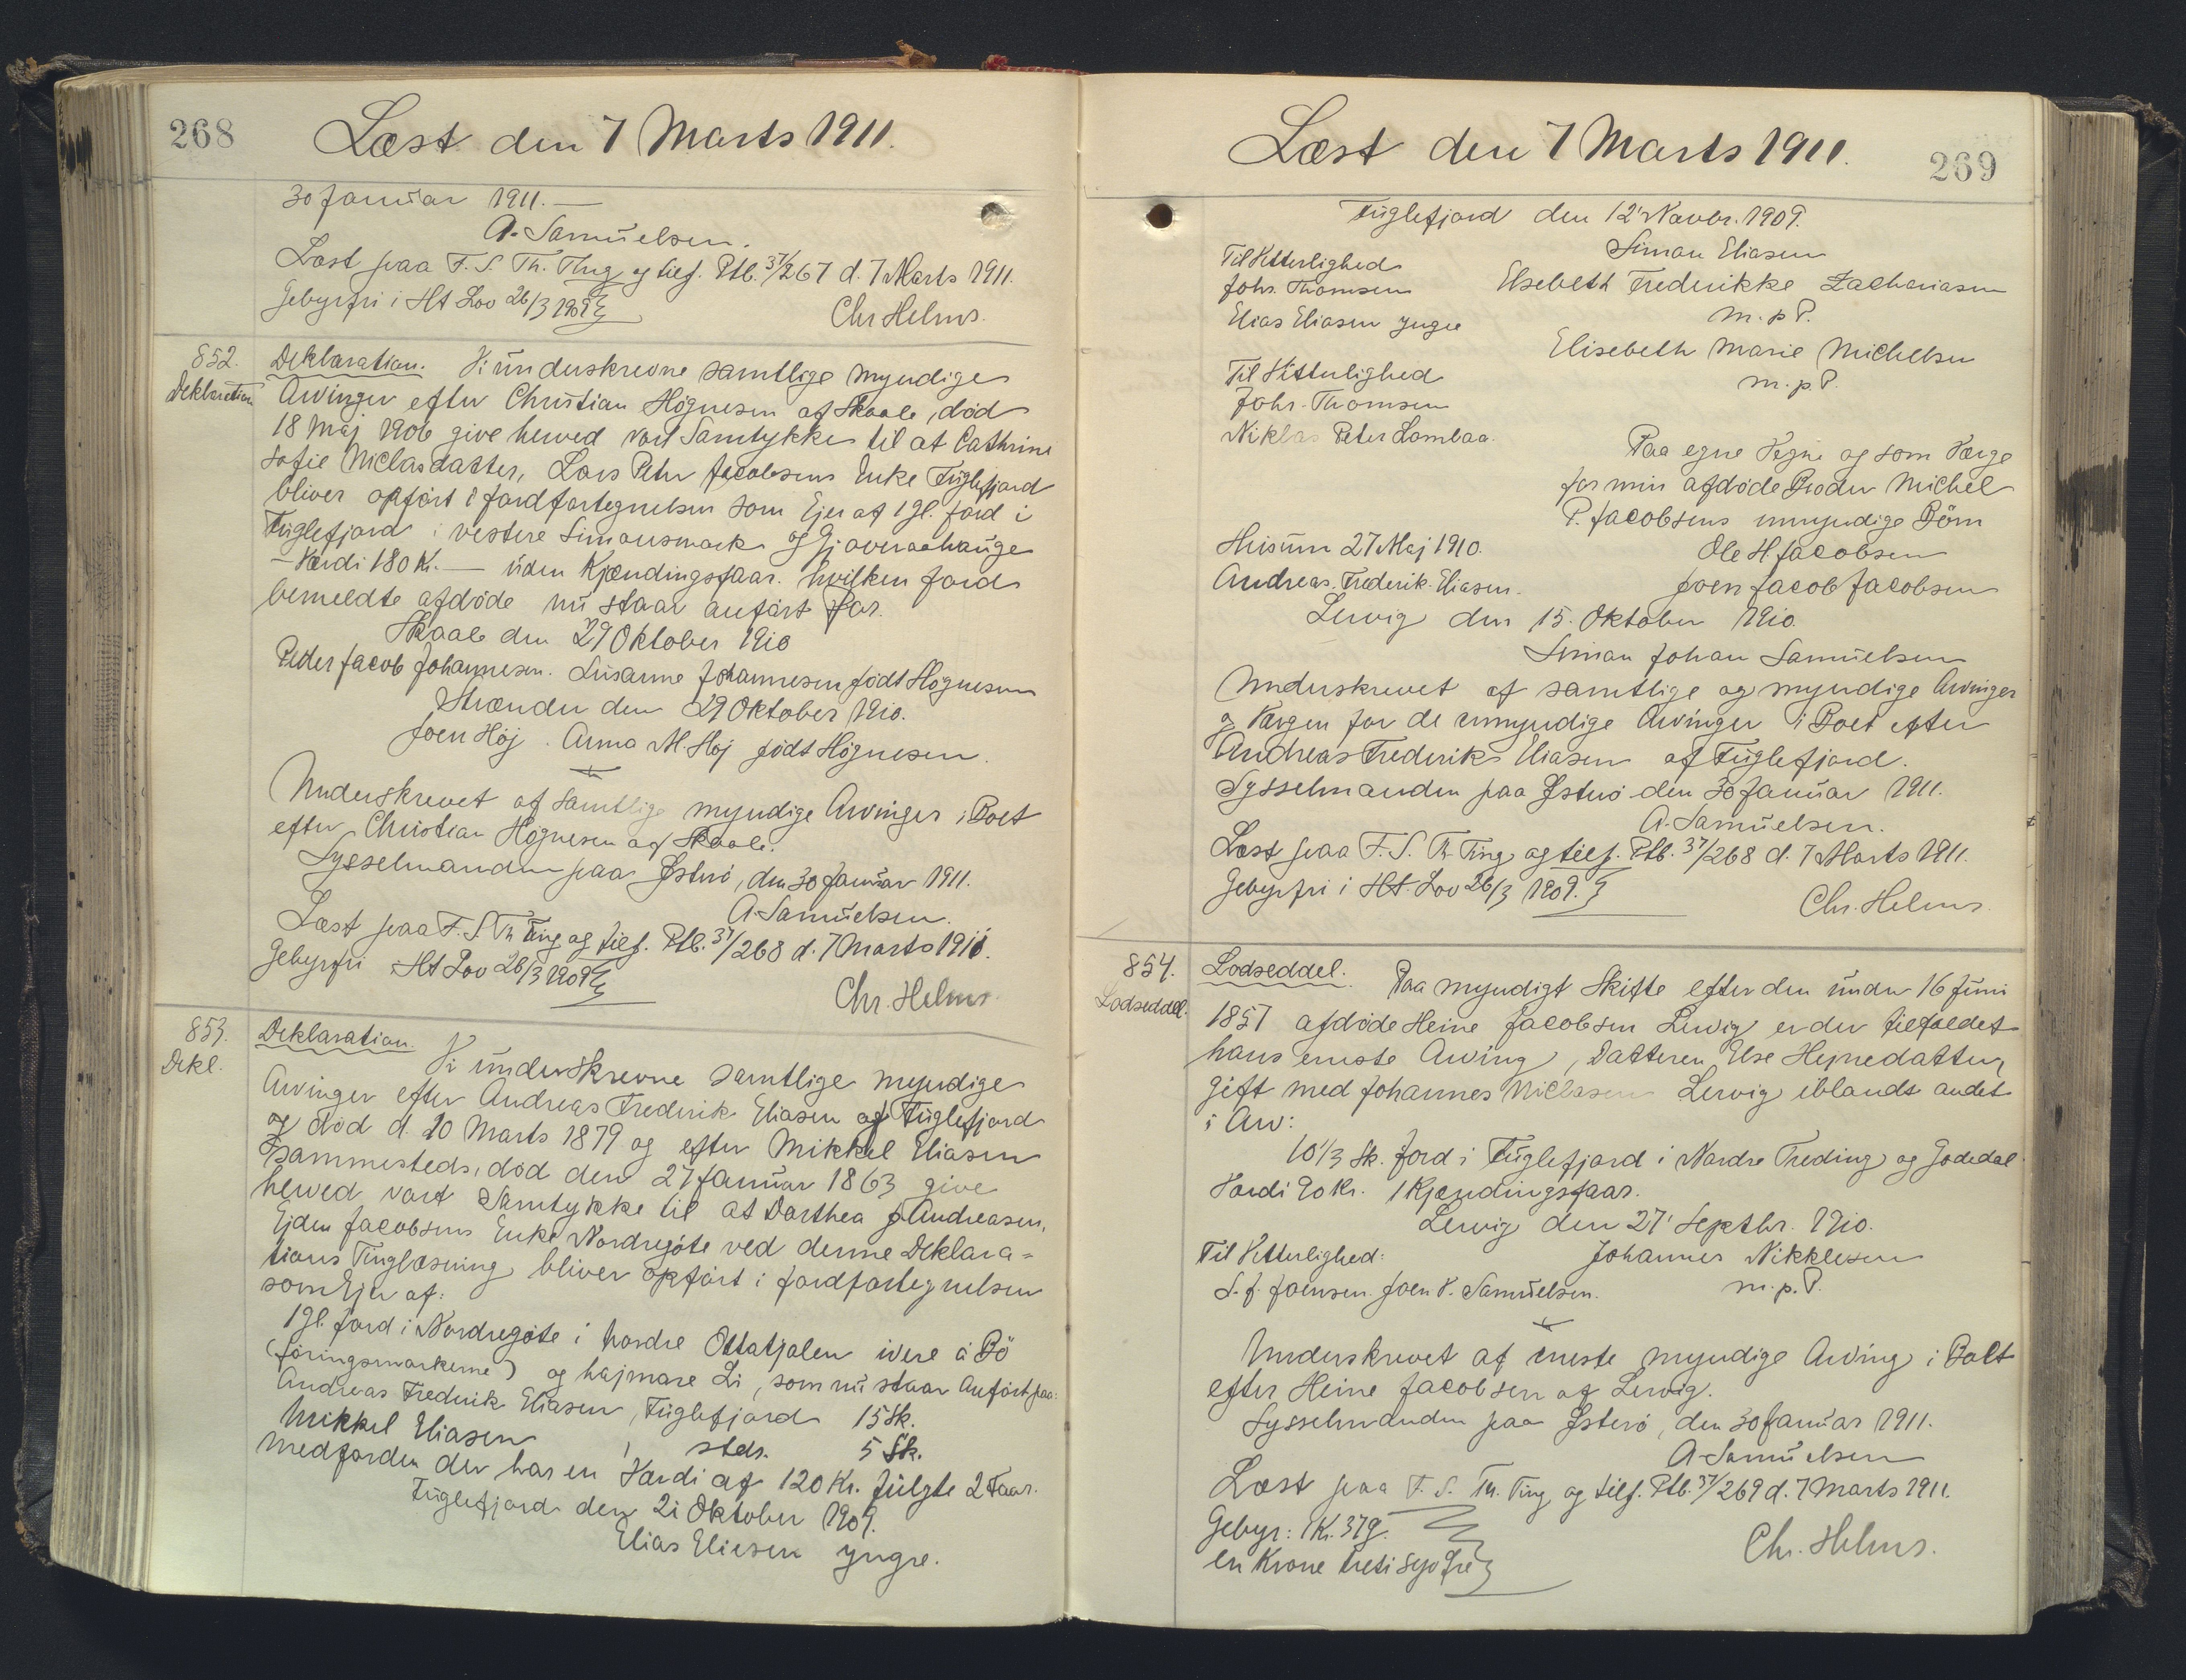 268
Læst den 7 Marts 1911.
30 Januar 1911. —
A. Samuelsen.
Læst paa F. S. Th. Thng og tilf. Ptb. 37/267 d. 7 Marts 1911.
Gebyrfri i Ht Lov 26/3 1909
Chr Helms.
852.
Deklaration
Deklaration. Vi underskrevne samtlige myndige
Arvinger efter Christian Högnesen af Skaale, död
18 Maj 1906 give herved vort Samtykke til at Cathrine
Sofie Niclasdatter, Lars Peter Jacobsens Enke Fuglefjord
bliver opfört i Jordfortegnelsen som Ejer af 1 gl. Jord i
Fuglefjord i vestere Simonsmork og Gjoveraahauge
- Værdi 180 Kr. — uden Kjændingsfaar. hvilken Jord
bemeldte afdöde nu staar anfört for.
Skaale den 29 Oktober 1910
Peder Jacob Johannesen. Susanne Johannesen født Högnesen
Strænder den 29 Oktober 1910.
Joen Höj. Anna M. Höj født Högnesen.
Underskrevet af samtlige myndige Arvinger i Boet
efter Christian Högnesen af Skaale.
Sysselmanden paa Østerö, den 30 Januar 1911.
A. Samuelsen.
Læst paa F. S. Th Ting og tilf. Ptb. 37/268 d. 7 Marts 1911.
Gebyrfri Ht Lov 26/3 1909
Chr. Helms.
853.
Dekl.
Deklaration.
Vi underskrevne samtlige myndige
Arvinger efter Andreas Frederik Eliasen af Fuglefjord
og död d. 20 Marts 1879 og efter Mikkel Eliasen
sammesteds, död den 27 Januar 1863 give
herved vort Samtykke til at Dorthea J Andreasen,
Ejden Jacobsens Enke Nordregöte ved denne Deklara=
tions Tinglæsning bliver opfört i Jordfortegnelsen
som Ejer af:
1 gl. Jord i Nordregöte i nordre Ottatjalen ivere á Bö
(föringsmarkerne) og hajmare Li, som nu staar Anfört paa:
Andreas Frederik Eliasen, Fuglefjord 15 Sk.
Mikkel Eliasen, steds. 5 Sk.
Med Jorden der har en Værdi af 120 Kr. fulgte 2 Faar.
Fuglefjord den 21 Oktober 1909.
Elias Eliesen yngre.
Læst den 7 Marts 1911.
269
Fuglefjord den 12' Novbr. 1909.
Til Vitterlighed
Simon Eliasen
Johs. Thomsen
Elsebeth Frederikke Zachariasen
Elias Eliasen yngre
m. p P.
Elisebeth Marie Michelsen
Til Vitterlighed
m. p P.
Johs. Thomsen
Niklas Peter Lambaa.
Paa egne Vegne og som Værge
for min afdöde Broder Michel
P. Jacobsens umyndige Börn
Husum 27 Maj 1910.
Ole H Jacobsen
Andreas. Frederik. Eliasen.
Joen Jacob Jacobsen
Lervig den 15. Oktober 1910.
Simon Johan Samuelsen
Underskrevet af samtlige og myndige Arvinger
og Værgen for de umyndige Arvinger i Boet efter
Andreas Frederik Eliasen af Fuglefjord.
Sysselmanden paa Østerö den 30 Januar 1911.
A. Samuelsen.
Læst paa F. S. Th Ting og tilf. Ptb. 37/268 d. 7 Marts 1911.
Gebyrfri i Ht Lov 26/3 1909.
Chr. Helms.
854.
Lodseddel.
Lodseddel. Paa myndigt Skifte efter den under 16 Juni
1857 afdöde Heine Jacobsen Lervig er der tilfaldet
hans eneste Arving, Datteren Else Heinedatter,
gift med Johannes Niclasen Lervig iblandt andet
i Arv:
10 1/3 Sk. Jord i Fuglefjord i Nordre Treding og Jodedal
Værdi 90 Kr. 1 Kjændingsfaar.
Lervig den 27' Septbr. 1910.
Til Vitterlighed:
Johannes Nikklesen
S. J. Joensen. Joen P. Samuelsen.
m. p. P.
Underskrevet af eneste myndige Arving i Boet
efter Heine Jacobsen af Lervig.
Sysselmanden paa Østerö, den 30 Januar 1911.
A. Samuelsen
Læst paa F. S. Th. Ting og tilf. Ptb. 37/269 d. 7 Marts 1911.
Gebyr: 1 Kr. 37 Ø.
en Krone tretisyv Øre
Chr. Helms.